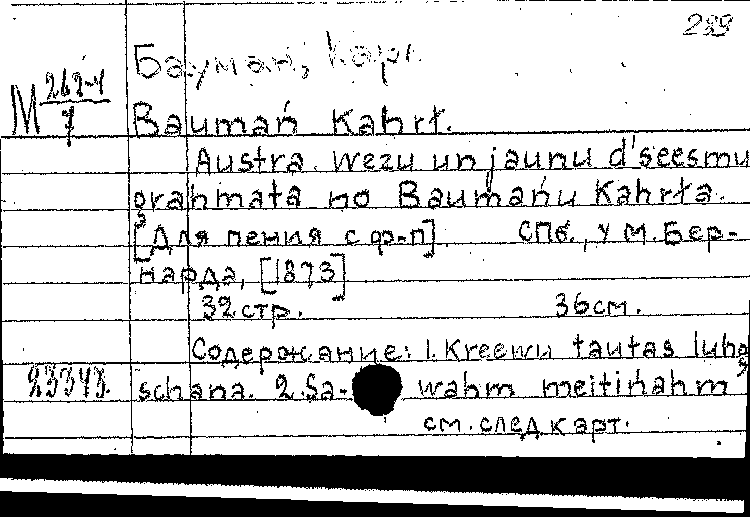 289
Бауман, Карл.
М 262-4/7
Bauman Kahrl.
Austra. Wezu un jaunu d'seesmu
grahmata no Baumanu Kahrla.
[Для пения с ф-п]. СПб., у М. Бер-
нарда, [1873]
32 стр. 36 см.
Содержание: 1. Kreewu tautas luhg
schana. 2. Sa- wahm meitinahm
23343.
см. след. карт.